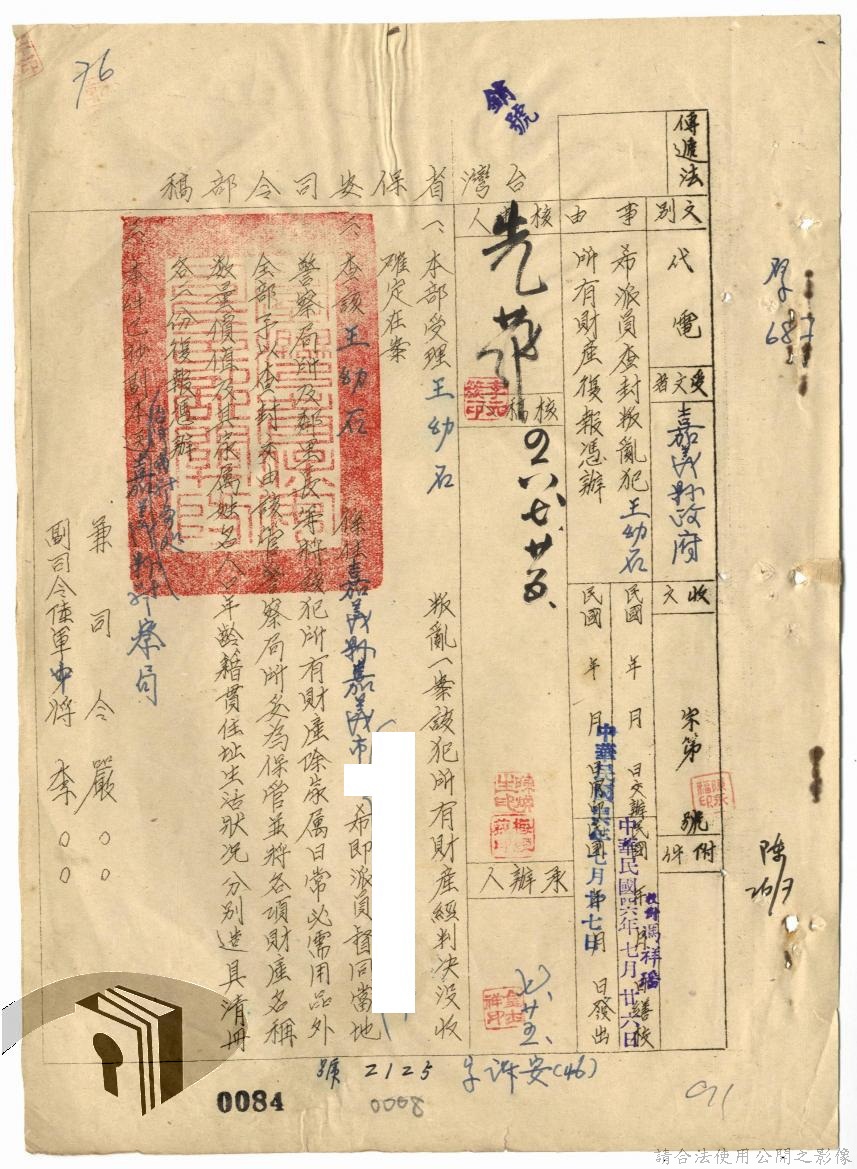 76
銷號
傳遞法
台灣省保安司令部稿
文別
代電
受文者
嘉義縣政府
收文
字第
號
附件
事由
希派員查封叛亂犯王幼石
所有財產復報憑辦
民國 年 月 日交辦
民國 年 月 日繕校
民國 年 月 日發出
中華民國四六年七月廿六日
校對馮祥
核稿
承辦人
七、廿五、
四六、七、廿五、
一、本部受理王幼石 叛亂一案該犯所有財產經判決沒收
確定在案
二、查該王幼石 係住嘉義縣嘉義市 希即派員督同當地
警察局所及鄰里長等將該犯所有財產除家屬日常必需用品外
全部予以查封交由該管警察局所妥為保管並將各項財產名稱
數量價值及其家屬姓名人口年齡籍貫住址生活狀況分別造具清冊
各二份復報憑辦
三、本件已抄副本送嘉義縣警察局
兼司令嚴○○
副司令陸軍中將李○○
陳
26/7
(46)安詳字 2125 號
0084
0008
91
請合法使用公開之影像